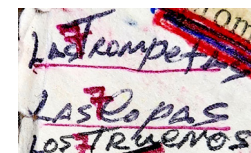 om
Las 7 Trompetas
Las 7 Copas
Los 7 Truenos